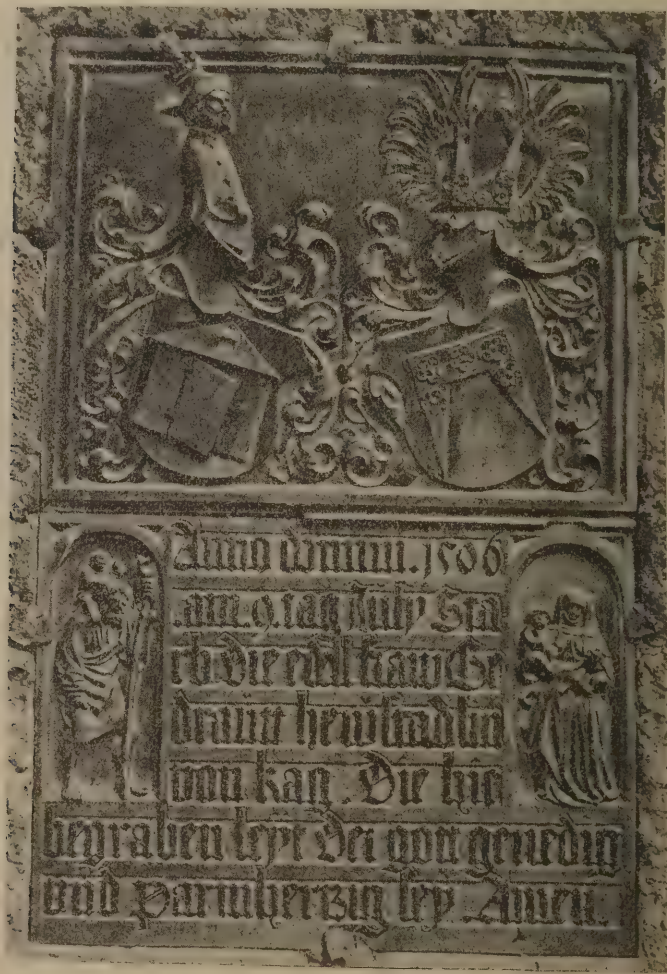 Anno domini . 1506
. am . 9 . tag July Sta
rb die edel fraw Ge
drautt
von kag . Die hie
begraben leyt Der gott genedig
vnd Parmhertzig sey Amen .